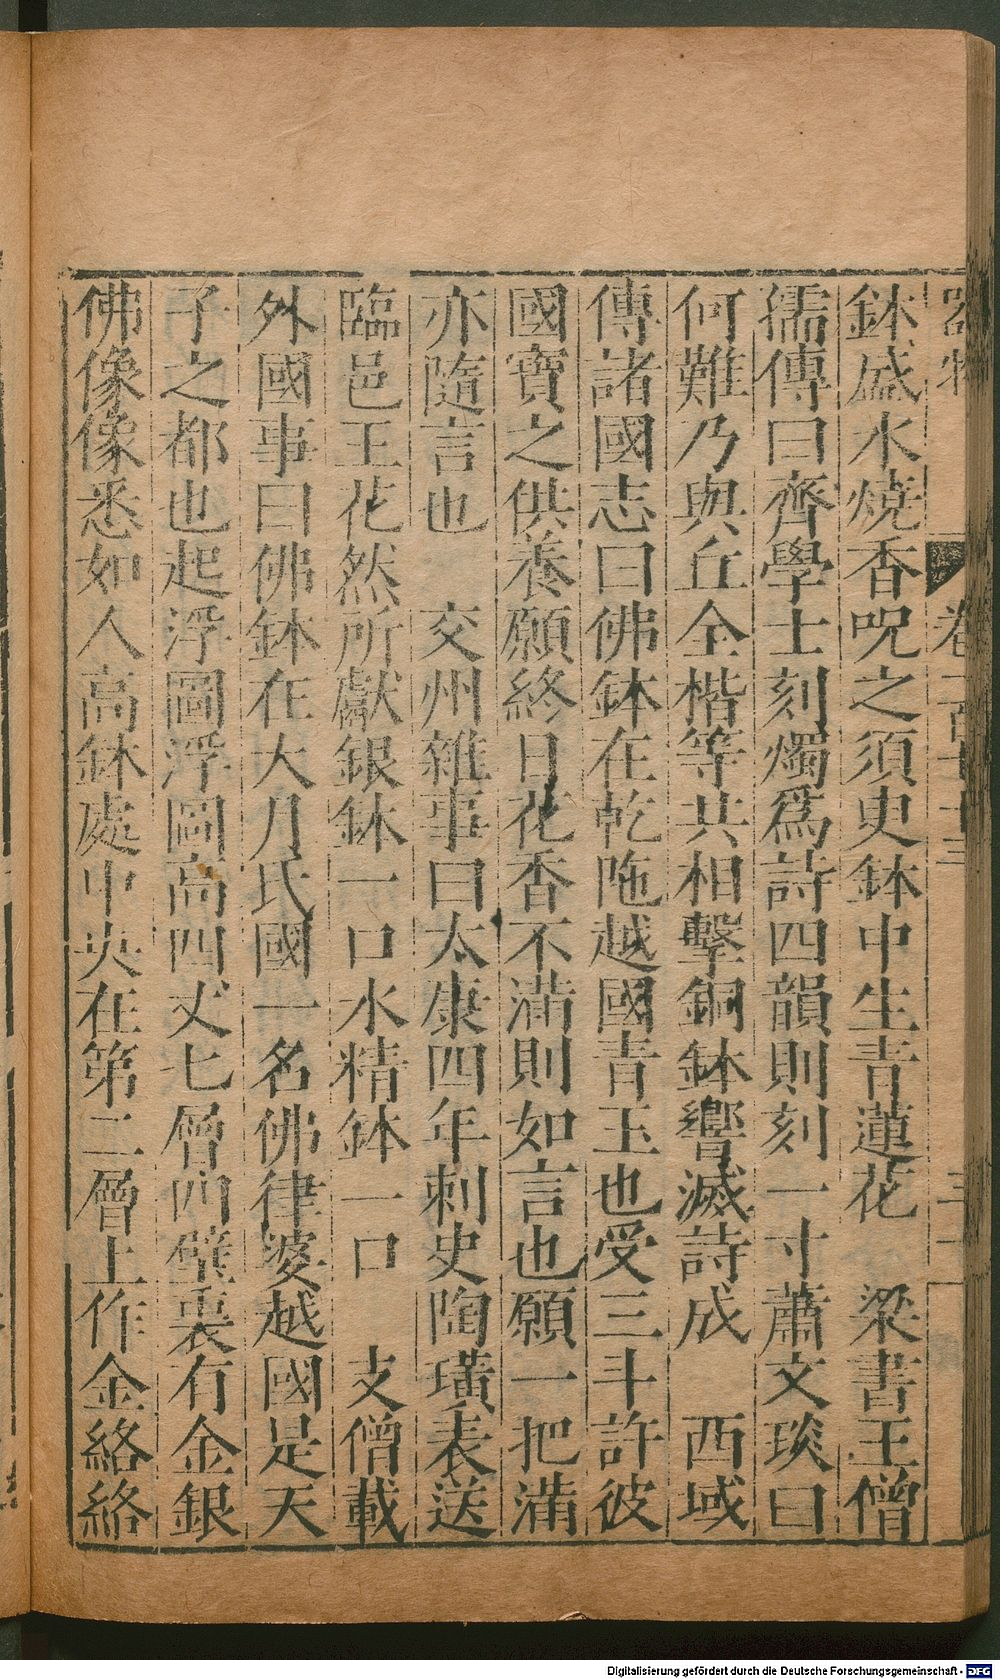 鉢盛水燒香呪之須史鉢中生青蓮花　梁書王僧
孺傳曰齊學士刻燭爲詩四韻則刻一寸蕭文琰曰
何難乃與丘全楷等共相擊銅鉢響滅詩成　西域
傳諸國志曰佛鉢在乾陁越國青玉也受三斗許彼
國寶之供養願終日花香不滿則如言也願一把滿
亦隨言也　交州雜事曰太康四年刺史陶璜表送
臨邑王花然所獻銀鉢一口水精鉢一口　支僧載
外國事曰佛鉢在大月氏國一名佛律婆越國是天
子之都也起浮圖浮圖高四丈七層四壁裏有金銀
佛像像悉如人高鉢處中央在第二層上作金絡絡
Digitalisierung gefördert durch die Deutsche Forschungsgemeinschaft - DFG